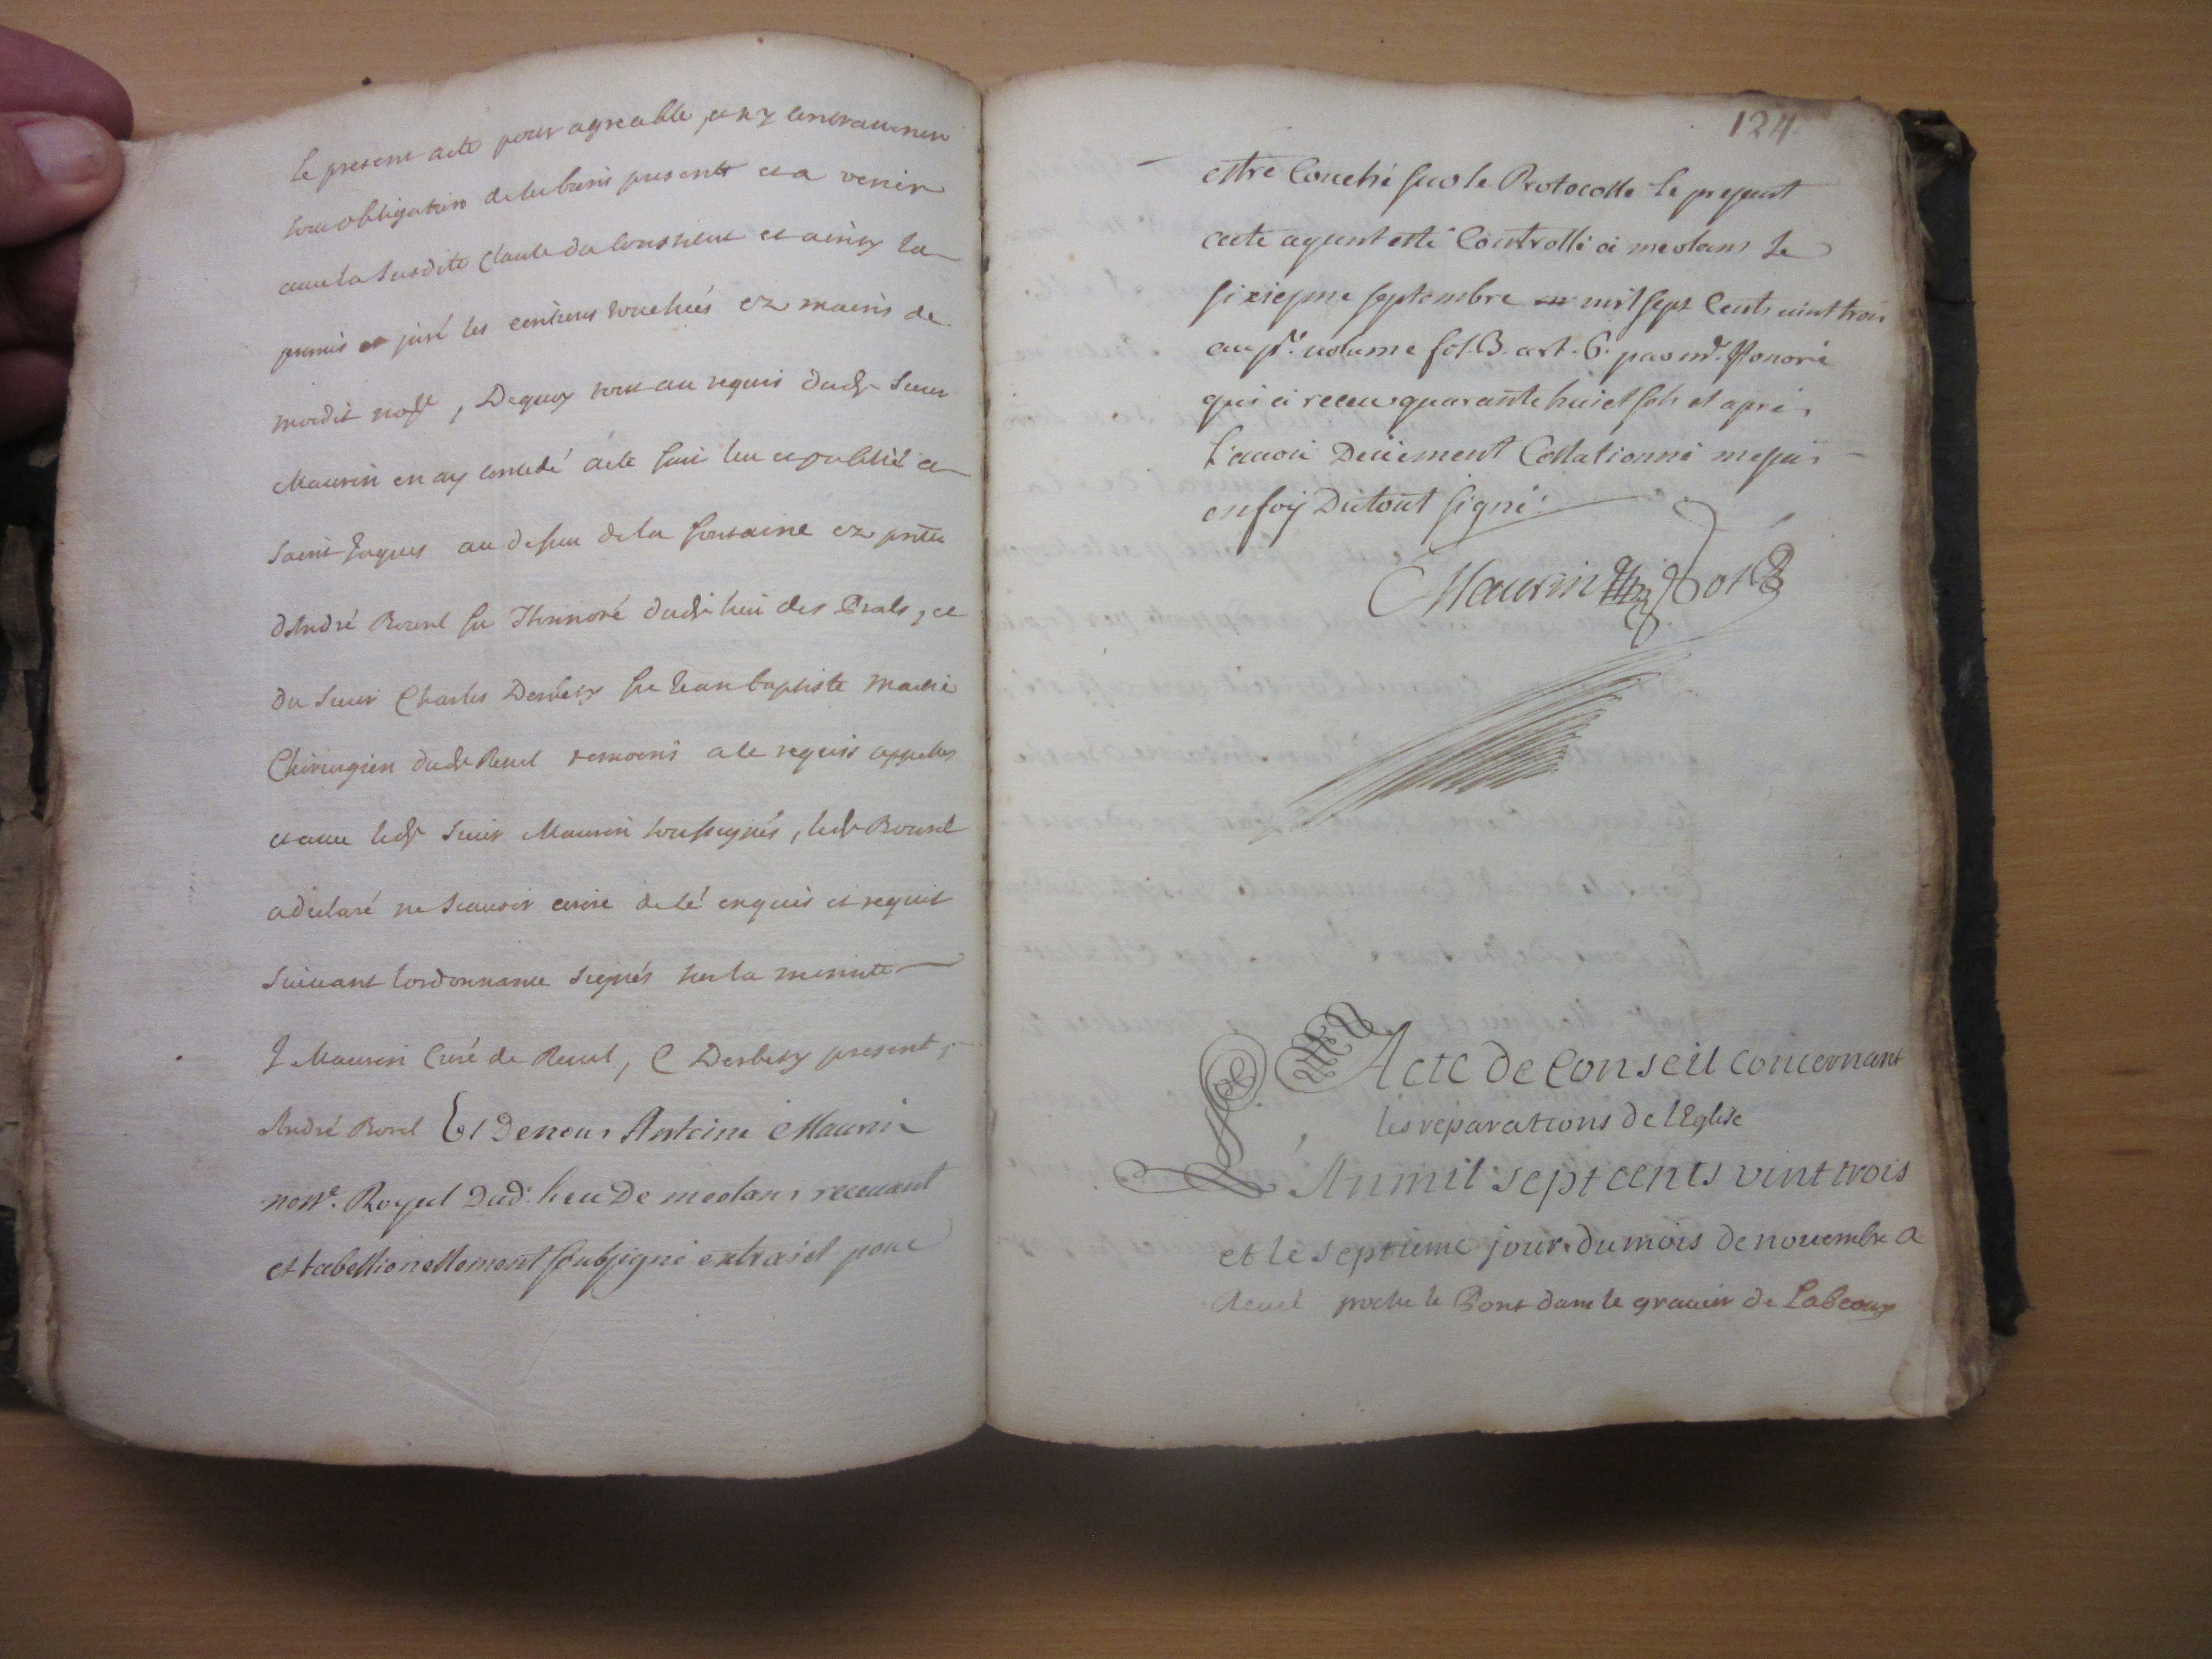 le present acte pour agreable, et n'y contrauenir
sou obligation de ses biens presents et a venir
auec la susdite clause du constitut et ainsy la
promis et juré les escritures touchées ez mains de
moedit nore, Dequoy tout au requis dudt sieur
Maurin en ay concedé acte fait leu et publié a
Saint Jaques au dessu de la fontaine ez pntes
d'André Borel fu Honnoré dudt lieu des Prats, et
du sieur Charles Derbesy fu Jean baptiste maitre
Chirurgien dudt Reuel temoins a le requis appelles
et auec ledt sieur Maurin soussignés, ledt Bourel
a declaré ne scauoir ecrire de le enquis et requit
suiuant l'ordonnance signés sur la minute
J Maurin Curé de Reuel, C Derbesy present,
André Borel Et De nous Antoine Maurin
nore. Royal Dud. lieu De meolans receuant
et tabellionellement soubsigné extraict pour
124
estre Couché sur le Protocolle le present
acte ayant esté Controllé a meolans le
sixiesme septembre mil sept Cents vint trois
au pr. volume fol. 3. art. 6. par mr. Honoré
qui a receu quarante huict sols et apres
l'auoir Deüement Collationné me suis
en foy Du tout signé.
Maurin Nore
Acte de Conseil concernant
les reparations de l'Eglise
An mil sept cents vint trois
et le septieme jour du mois de nouembre a
Reuel proche le Pont dans le grauier de Labeoux